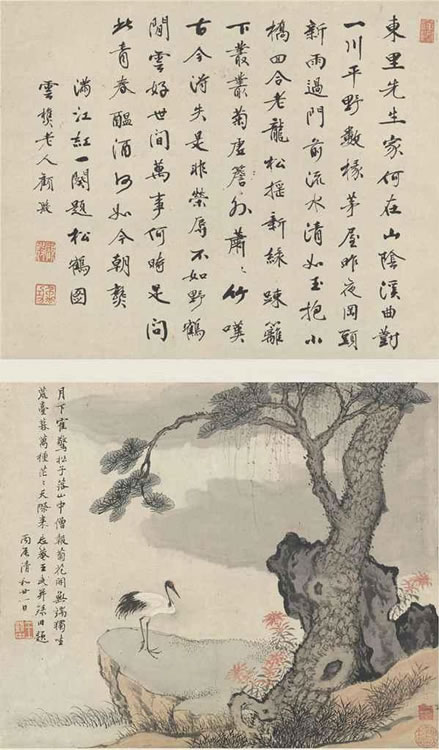 東里先生家何在山陰溪曲對
一川平野數椽茅屋昨夜岡頭
新雨過門前流水清如玉抱小
橋四合老龍松搖新綠踈籬
下叢叢菊虛簷外蕭〻竹嘆
古今得失是非榮辱不如野鶴
閒雲好世間萬事何時足問
此青春醞酒何如今朝熟
滿江紅一闋題松鶴圖
雲樵老人顧殷
月下寉驚松子落山中僧報菊花開無端獨坐
荒臺暮萬種茫〻天際來 忘菴王武并題
丙辰清和廿一日